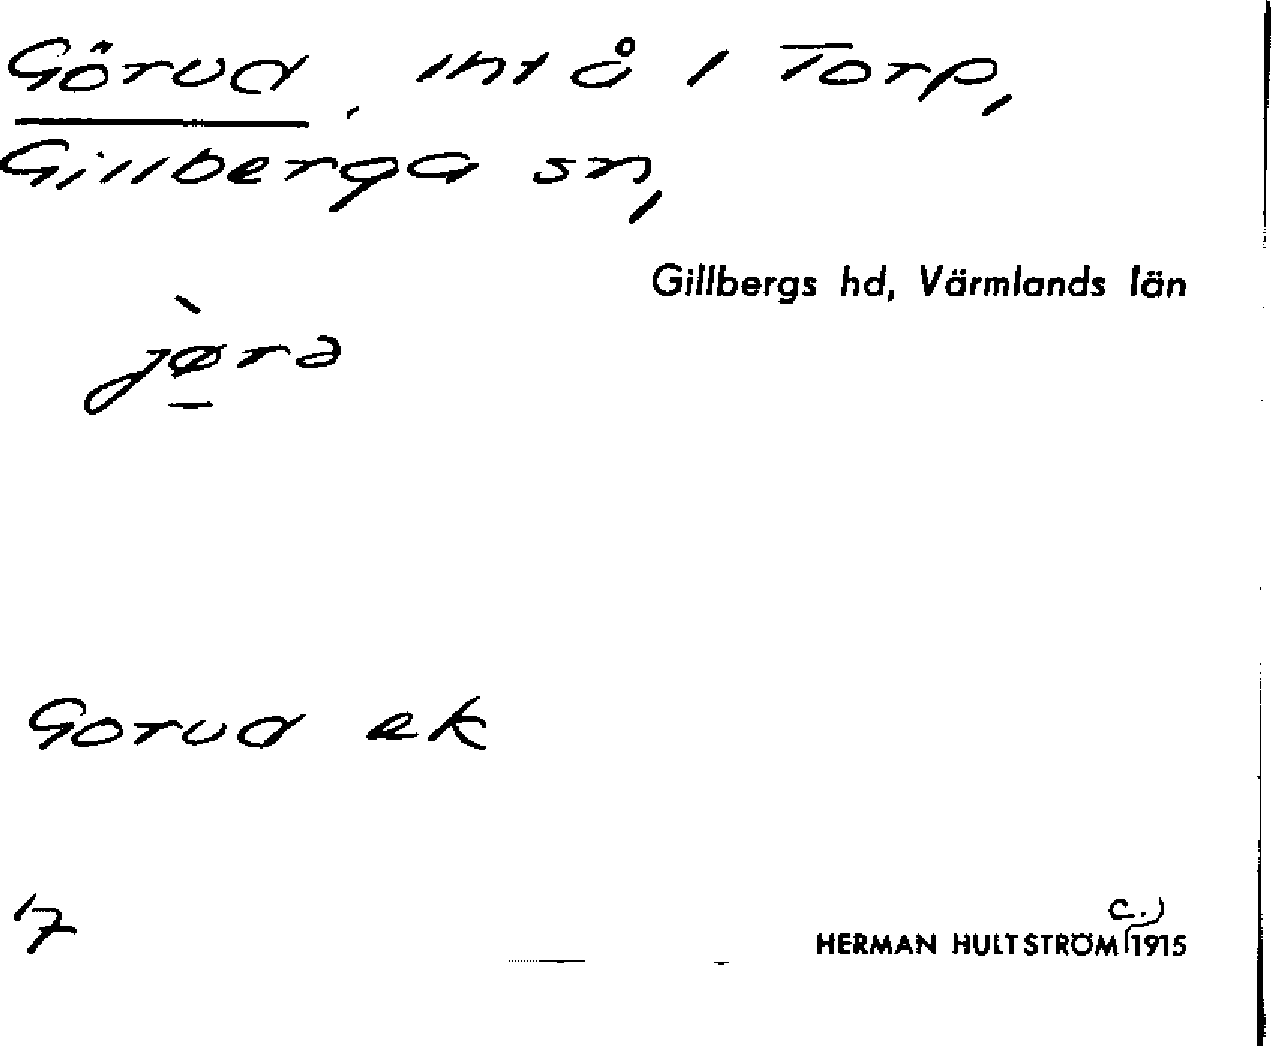 Görud, int å i Torp,
Gillberga sn,
Gillbergs hd, Värmlands län
jø̱̀rə
Gorud ek
'7
c.)
HERMAN HULTSTRÖM 1915